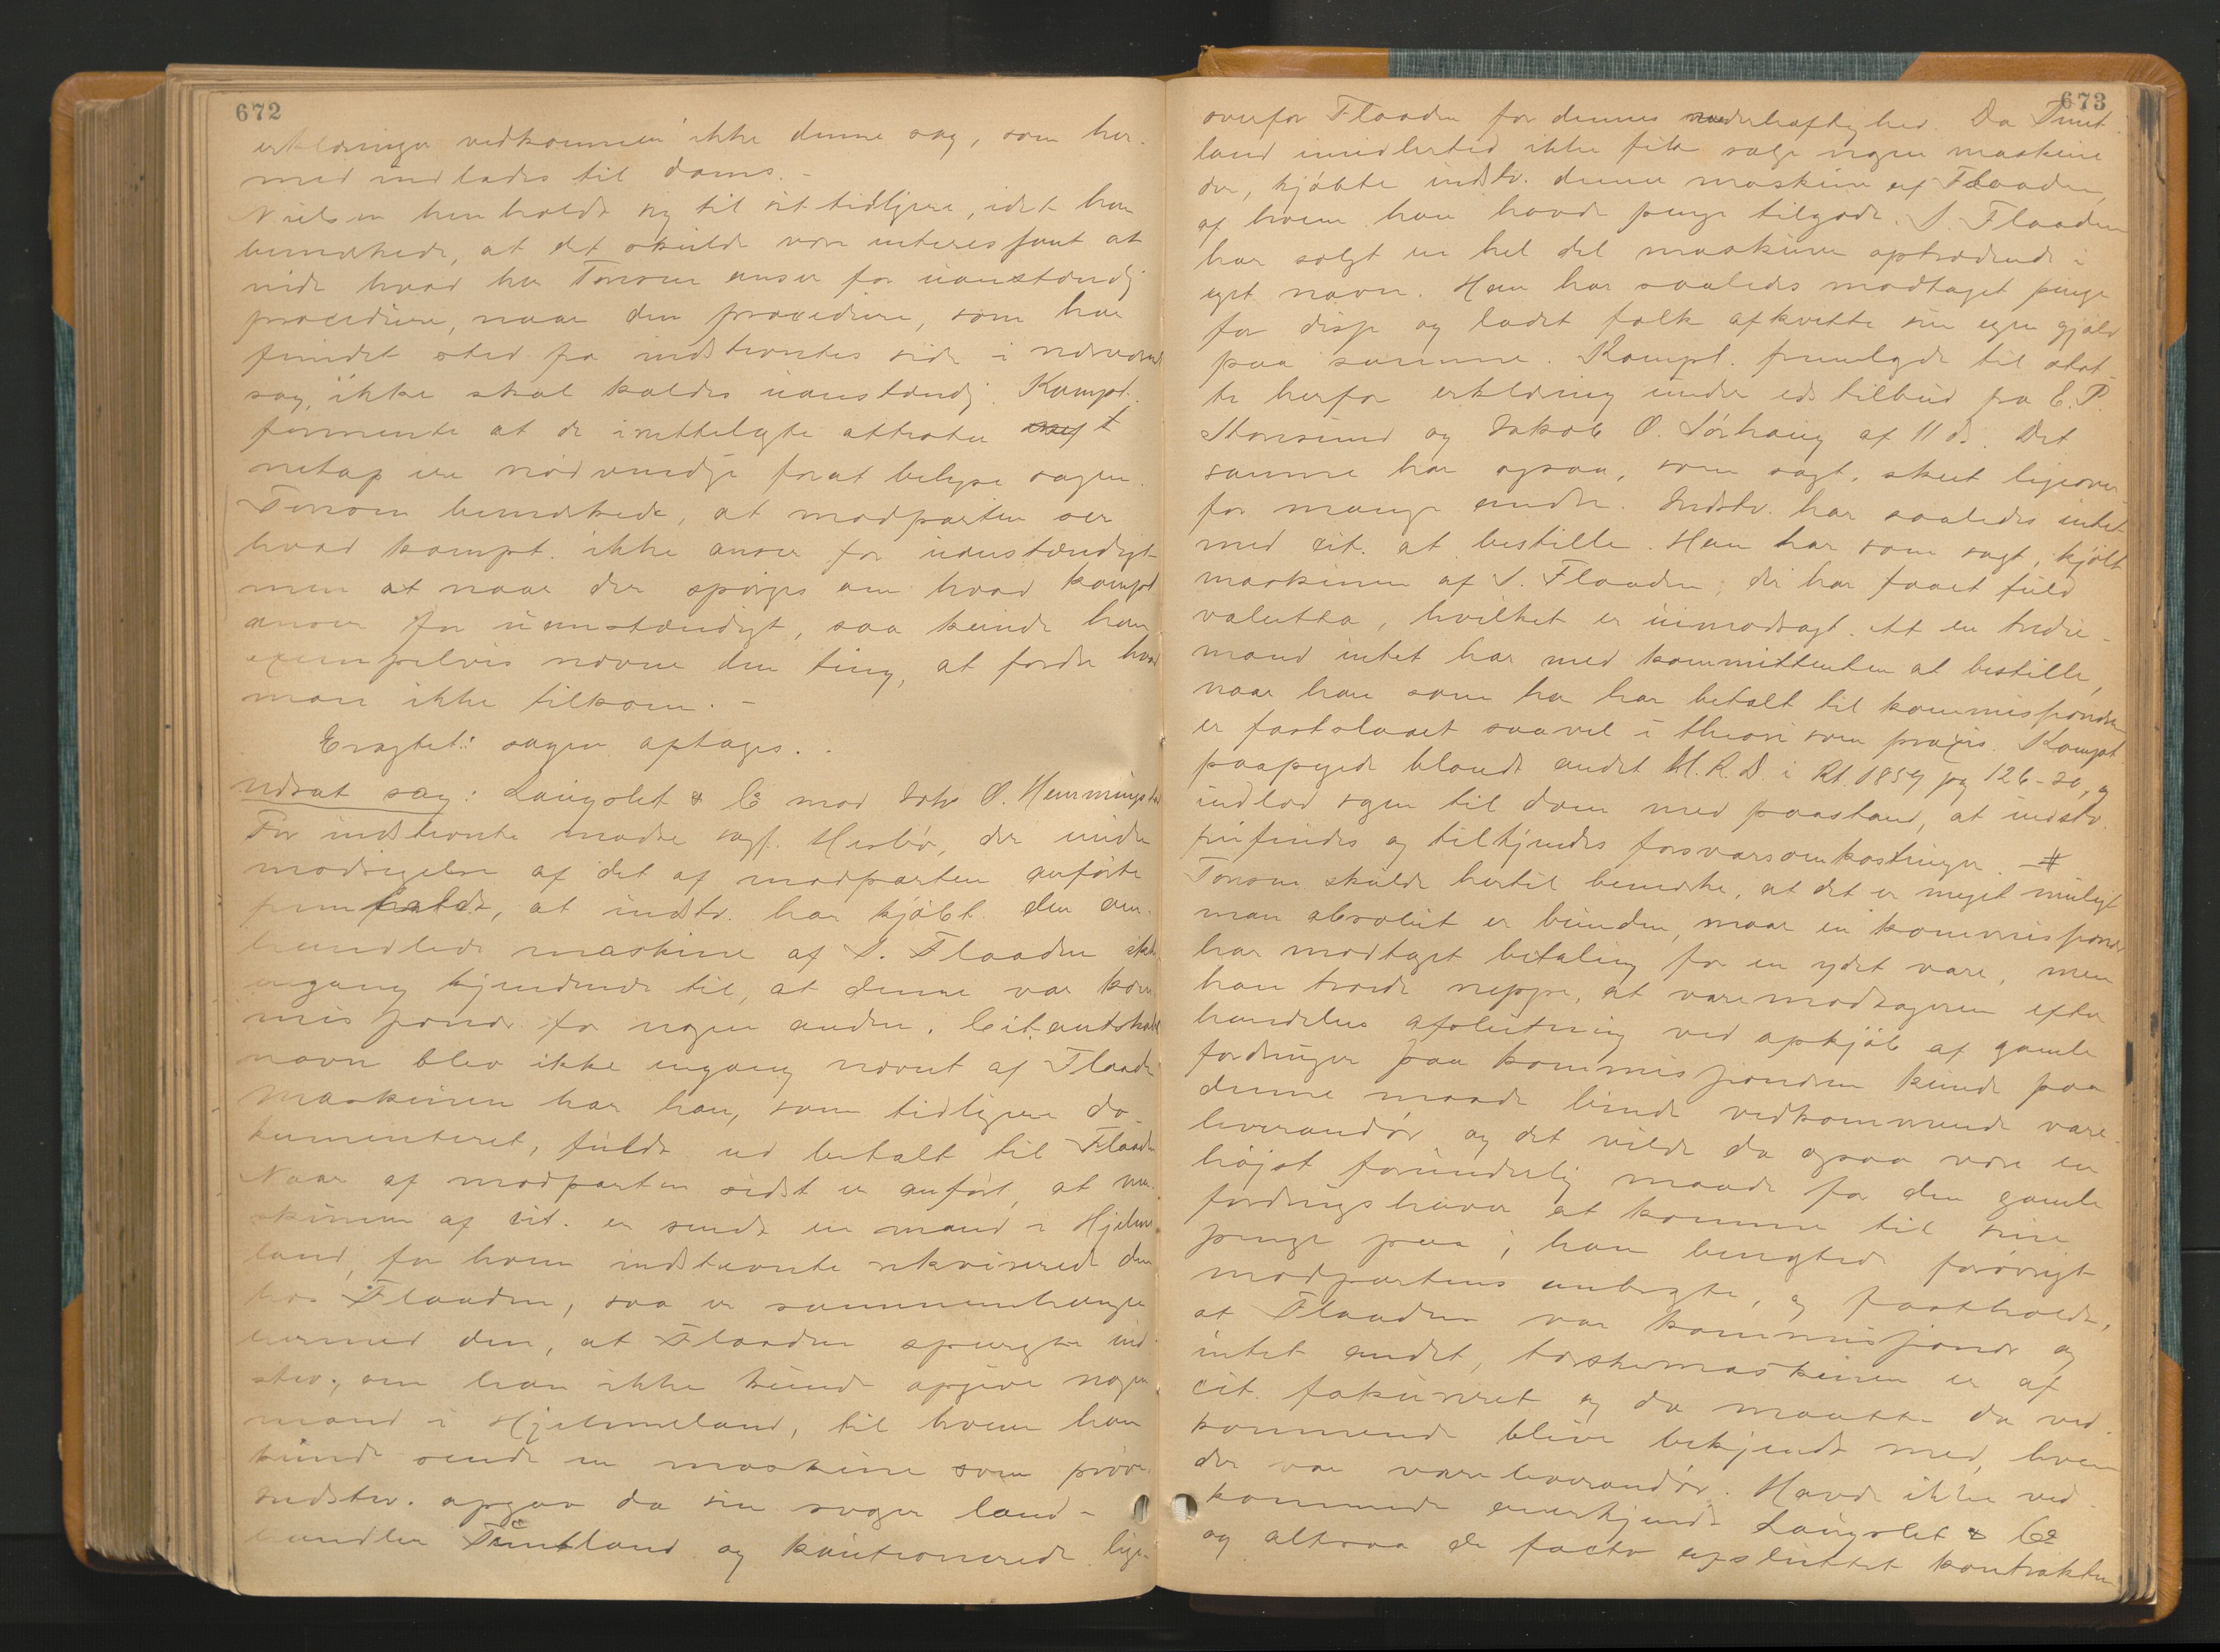 672
erklæringer vedkommen ikke denne sag, som her-
med indlades til doms. -
Nielsen henholdt sig til sit tidligere, idet han
bemærkede, at det skulde være interessant at
vide hvad hr Tonsom anser for uanstændig
procedure, naar den procedure, som har
fundet sted fra indstevntes side i nærværend
sag, ikke skal kaldes uanstændig. Kompt.
formente at de irettelagte attester
netop ere nødvendige forat belyse sagen.
Tonsom bemærkede, at modparten ser
hvad kompt. ikke anser for uanstændigt
men at naar der spørges om hvad kompt
anser for uanstændigt, saa kunde han
exempelvis nævne den ting, at fordre hvad
man ikke tilkom. -
Eragtet: sagen optages. -
Udsat sag: Laugslet & Co mod Joh. O. Hemmingstad
For indstevnte mødte sagf. Hesbø, der under
modsigelse af det af modparten anførte
fremholdt, at indstv. har kjøbt den om-
handlede maskine af S. Flaaden ikke
engang kjendende til, at denne var kom-
missionær for nogen anden. Citantskabets
navn blev ikke engang nævnt af Flaaden
Maskinen har han, som tidligere do-
kumenteret, fuldt ud betalt til Flaaden
Naar af modparten sidst er anført, at ma-
skinen af cit. er sendt en mand i Hjelme-
land, for hvem indstævnte rekvirerede den
hos Flaaden, saa er sammenhængen
hermed den, at Flaaden spurgte ind-
stev., om han ikke kunde opgive nogen
mand i Hjelmeland, til hvem han
kunde sende en maskine som prøve.
Indstev. opgav da sin svoger land-
handler Tuntland og kautionerede lige-
673
overfor Flaaden for dennes vederheftighed. Da Tunt-
land imidlertid ikke fik solgt nogen maskine
der, kjøbte indstv. denne maskine af Flaaden,
af hvem han havde penge tilgode. S. Flaaden
har solgt en hel del maskiner optrædende i
eget navn. Han har saaledes modtaget penge
for disse og ladet folk afkvitte sin egen gjæld
paa samme. Kompt. fremlagde til støt-
te herfor erklæring under eds tilbud fra E. P.
Stensund og Jakob O. Sørhaug af 11 ds. Det
samme har ogsaa, som sagt, skeet ligeover-
for mange andre. Indstv. har saaledes intet
med cit. at bestille. Han har som sagt, kjøbt
maskinen af S. Flaaden, der har faaet fuld
valutta, hvilket er uimodsagt. At en tredie-
mand intet har med kommittenten at bestille,
naar han som her har betalt til kommissionæren
er fastslaaet saavel i theori som praxis. Kompt
paapegede blandt andet H.R.D. i Rt. 1859 pg 126-20, og
indlod sagen til dom med paastand, at indstv.
frifindes og tilkjendes forsvarsomkostninger. #
Tonsom skulde hertil bemærke, at det er meget muligt
man absolut er bunden, naar en kommissionær
har modtaget betaling for en ydet vare, men
han troede neppe, at varemodtageren efter
handelens afslutning ved opkjøb af gamle
fordringer paa kommissionæren kunde paa
denne maade binde vedkommende vare-
leverandør og det vilde da ogsaa være en
høist forunderlig maade for den gamle
fordringshaver at komme til sine
penge paa; han benegtede forøvrigt
modpartens anbragte, og fastholdt,
at Flaaden var kommissionær og
intet andet, tærskemaskinen er af
cit. faktureret og da maatte da ved-
kommende blive bekjendt med, hvem
der var vareleverandør. Havde ikke ved-
kommende anerkjendt Laugslet & Co
og altsaa de facto afsluttet kontrakten